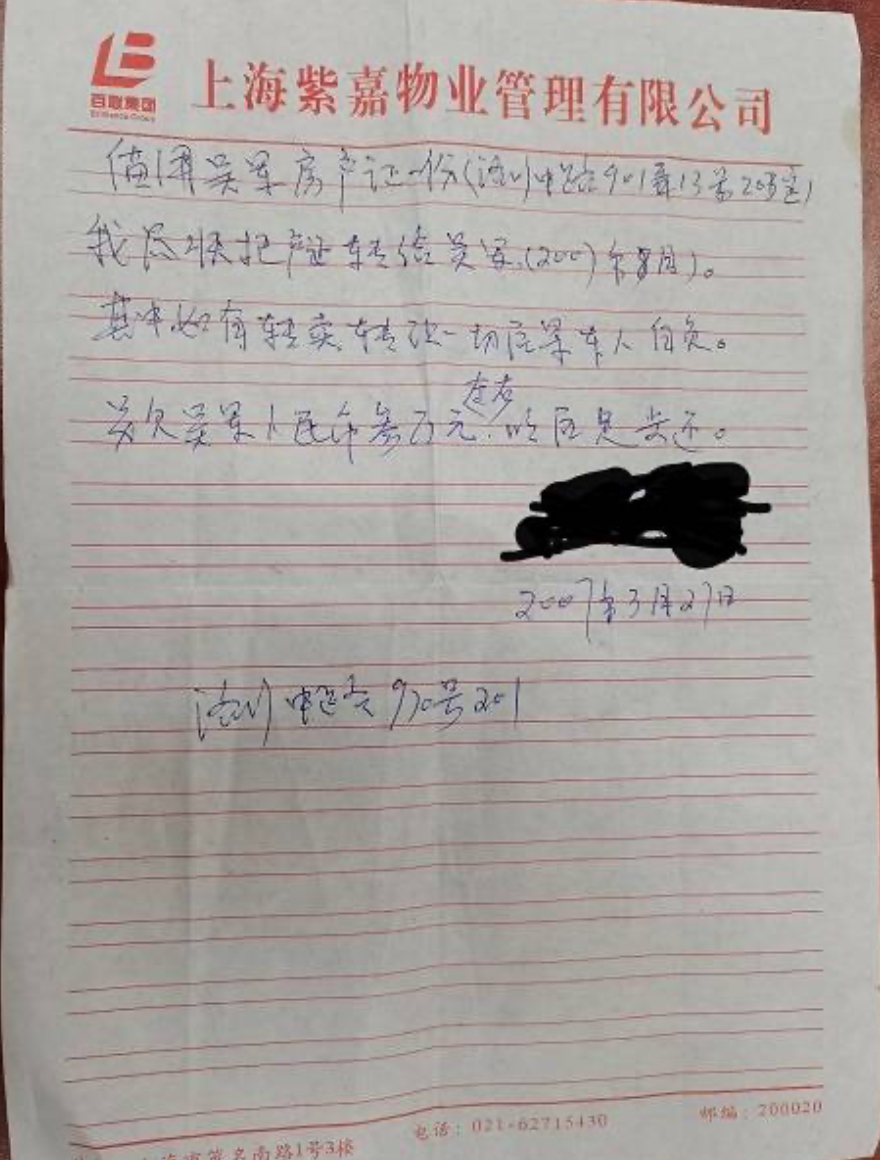 百联集团
上海紫嘉物业管理有限公司
借用吴军房产证一份(洛川中路901弄13号203室)
我尽快把产证转给吴军(2007年8月)。
其中如有转卖转让一切后果本人自负。
另欠吴军人民币叁万元左右
尽快归还。
2007年3月27日
洛川中路970号201
南路1号3楼
电话：021-62715430
邮编：200020